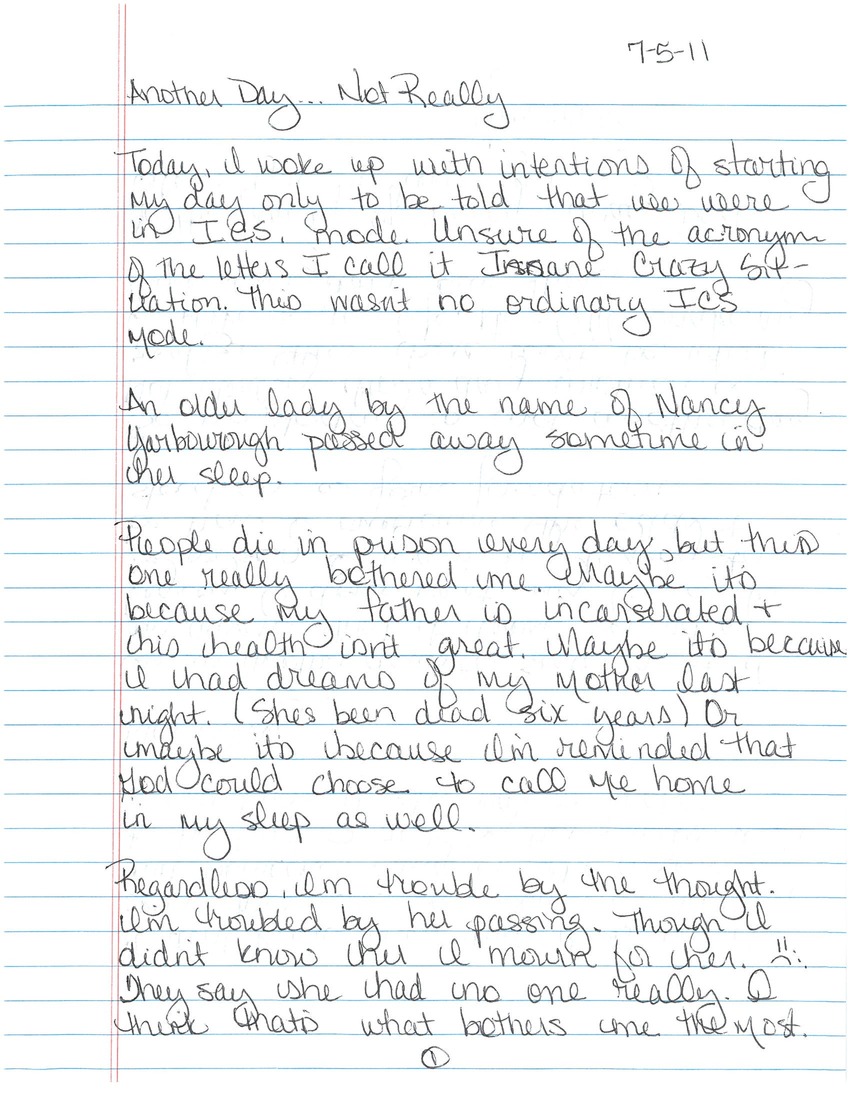 7-5-11
Another Day... Not Really
Today, I woke up with intentions of starting
my day only to be told that we were
in ICS. mode. Unsure of the acronym
of the letters I call it Insane Crazy Sit-
uation. This wasn't no ordinary ICS
mode.
An older lady by the name of Nancy
Yarbourough passed away sometime in
her sleep.
People die in prison every day, but this
one really bothered me. Maybe its
because my father is incarserated +
his health isn't great. Maybe its because
I had dreams of my mother last
night. (Shes been dead six years) Or
maybe its because I'm reminded that
God could choose to call me home
in my sleep as well.
Regardless, I'm trouble by the thought.
I'm troubled by her passing. Though I
didn't know her I mourn for her. :(
They say she had no one really. I
think thats what bothers me the most.
1